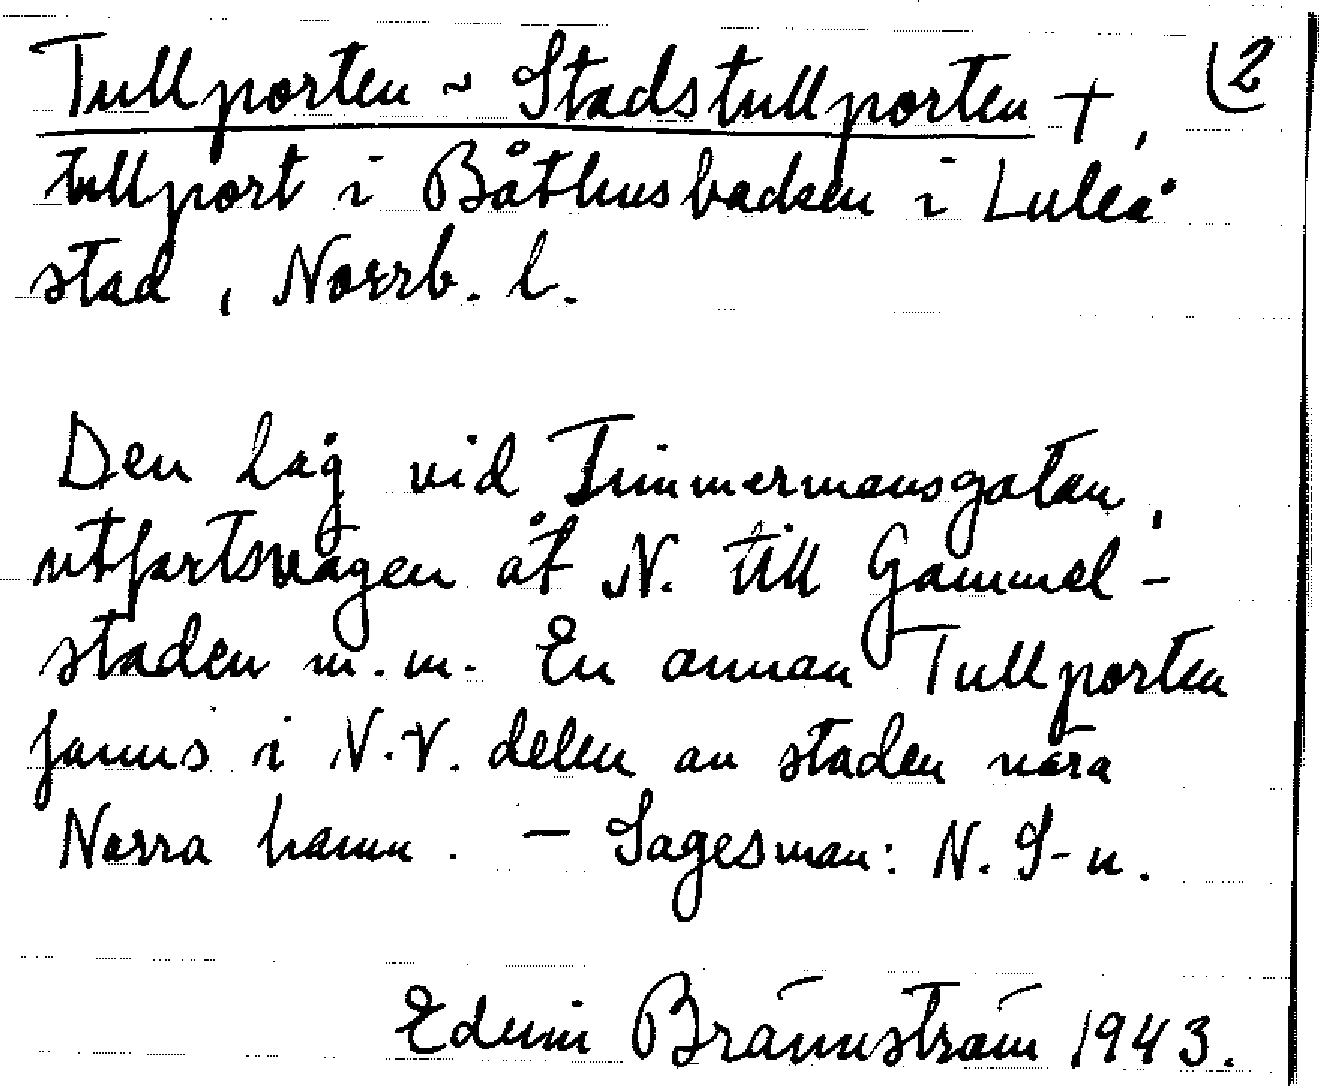 Tullporten ~ Stadstullporten +, 2
tullport i Båthusbacken i Luleå
stad, Norrb. l.
Den låg vid Timmermansgatan,
utfartsvägen åt N. till Gammel-
staden m.m. En annan Tullporten
fanns i N.V. delen av staden nära
Norra hamn. — Sagesman: N. S-n.
Edvin Brännström 1943.